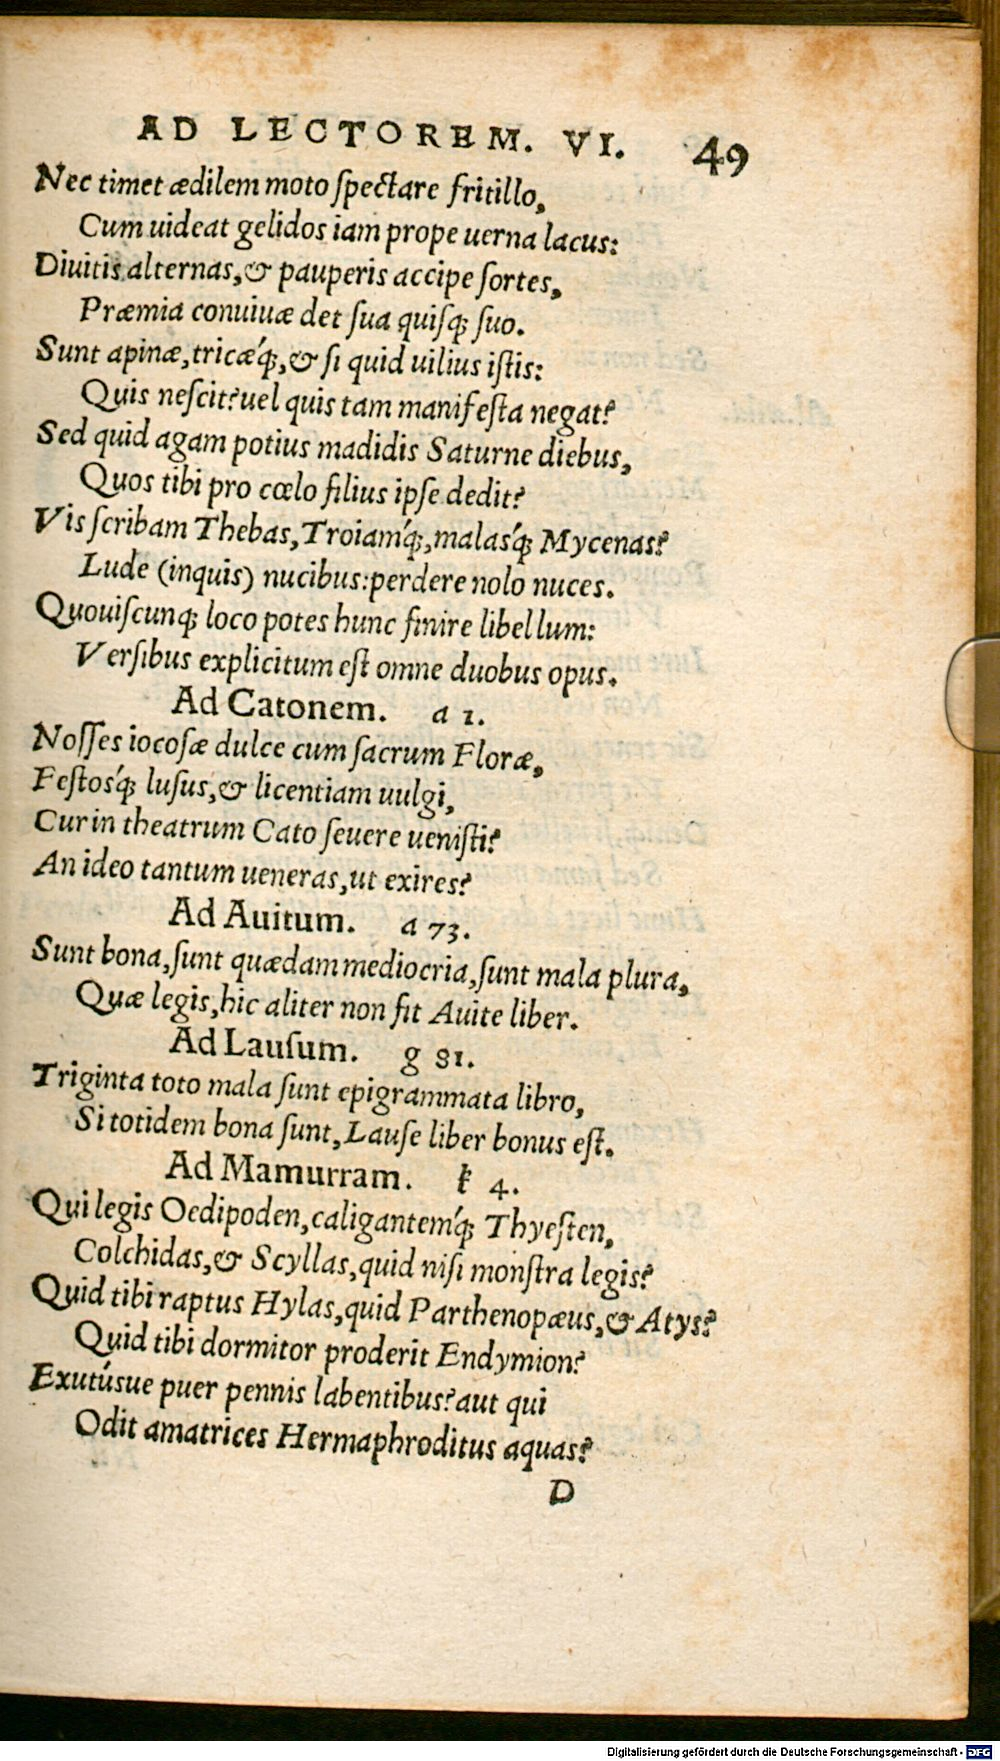 AD LECTOREM. VI. 49
Nec timet ædilem moto ſpectare fritillo,
Cum uideat gelidos iam prope uerna lacus:
Diuitis alternas, & pauperis accipe ſortes,
Præmia conuiuæ det ſua quiſꝗ ſuo.
Sunt apinæ, tricæꝗ́, & ſi quid uilius iſtis:
Quis neſcit? uel quis tam manifeſta negat?
Sed quid agam potius madidis Saturne diebus,
Quos tibi pro cœlo filius ipſe dedit?
Vis ſcribam Thebas, Troiamꝗ́, malasꝗ́ Mycenas?
Lude (inquis) nucibus: perdere nolo nuces.
Quouiſcunꝗ loco potes hunc finire libellum:
Verſibus explicitum eſt omne duobus opus.
Ad Catonem. a 1.
Noſſes iocoſæ dulce cum ſacrum Floræ,
Feſtosꝗ́ luſus, & licentiam uulgi,
Cur in theatrum Cato ſeuere ueniſti?
An ideo tantum ueneras, ut exires?
Ad Auitum. a 73.
Sunt bona, ſunt quædam mediocria, ſunt mala plura,
Quæ legis, hic aliter non fit Auite liber.
Ad Lauſum. g 81.
Triginta toto mala ſunt epigrammata libro,
Si totidem bona ſunt, Lauſe liber bonus eſt.
Ad Mamurram. k 4.
Qui legis Oedipoden, caligantemꝗ́ Thyeſten,
Colchidas, & Scyllas, quid niſi monſtra legis?
Quid tibi raptus Hylas, quid Parthenopæus, & Atys?
Quid tibi dormitor proderit Endymion?
Exutúsue puer pennis labentibus? aut qui
Odit amatrices Hermaphroditus aquas?
D
Digitalisierung gefördert durch die Deutsche Forschungsgemeinschaft - DFG